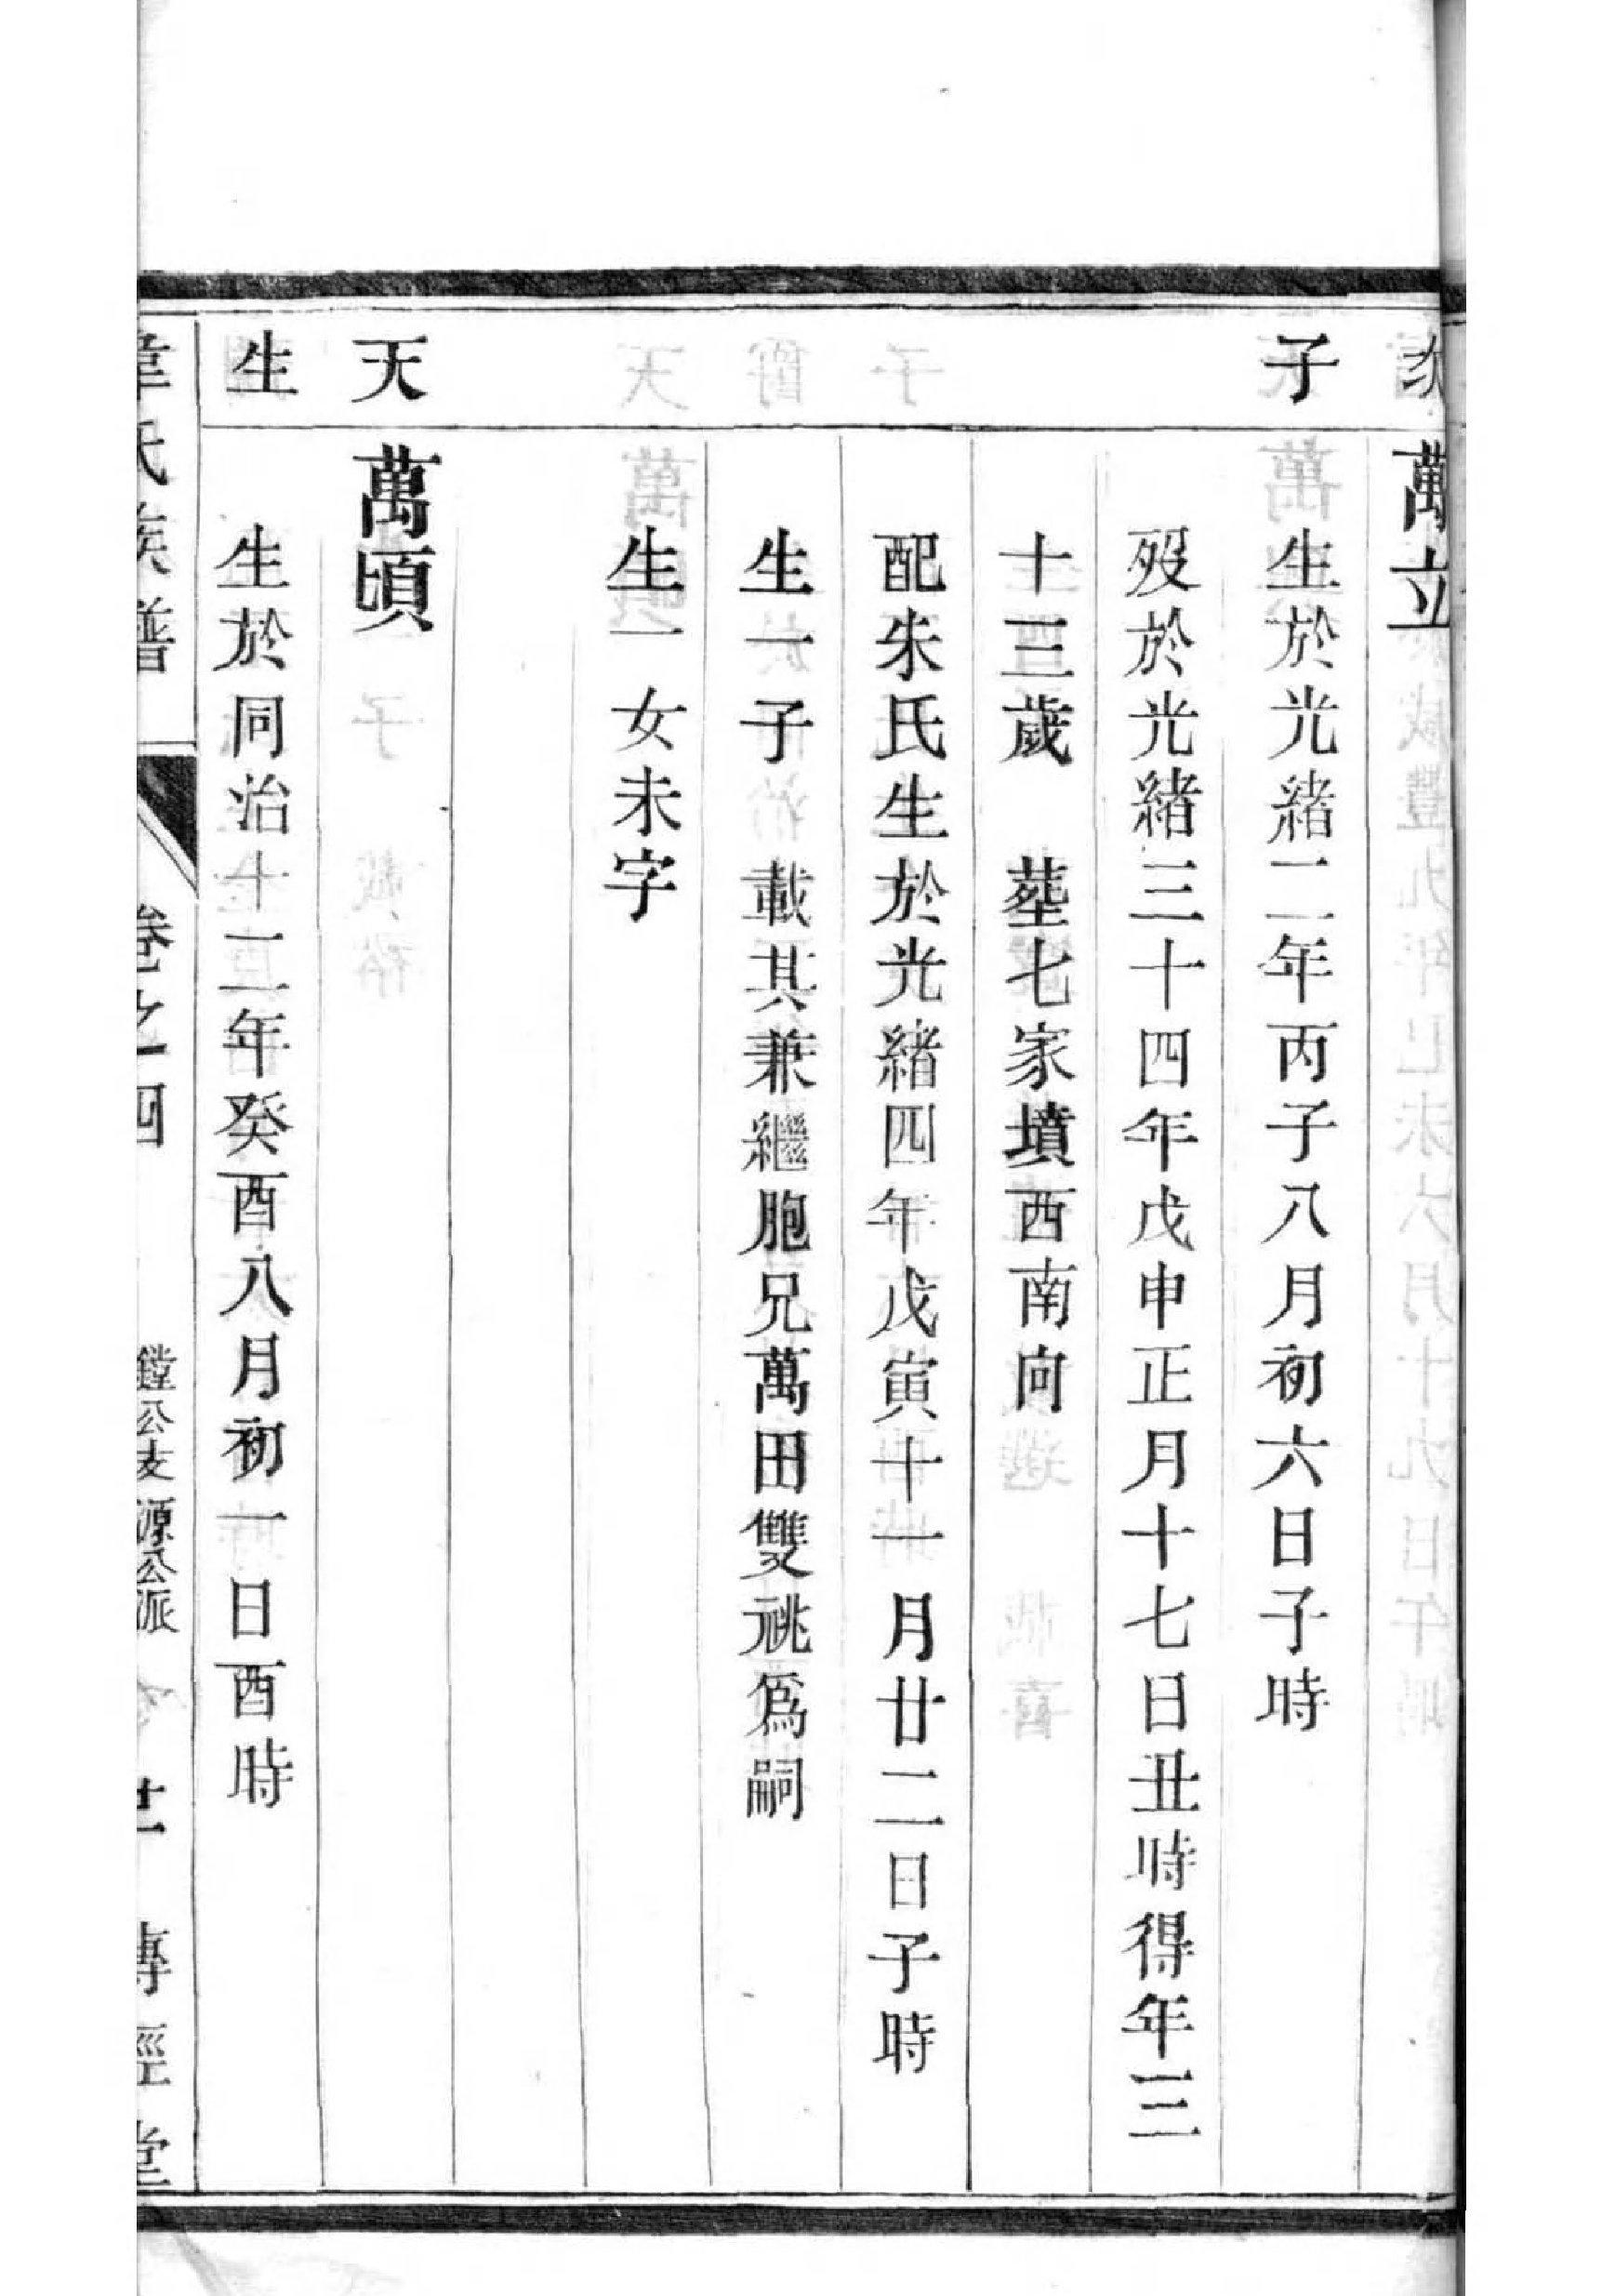 萬立
子
生於光緒二年丙子八月初六日子時
歿於光緒三十四年戊申正月十七日丑時得年三
十三歲　葬七家墳西南向
配朱氏生於光緒四年戊寅十一月廿二日子時
生一子　載其兼繼胞兄萬田雙祧爲嗣
生一女未字
天
萬頃
生
生於同治十二年癸酉八月初一日酉時
韋氏族譜
卷之四
鏜公支源公派
傳經堂